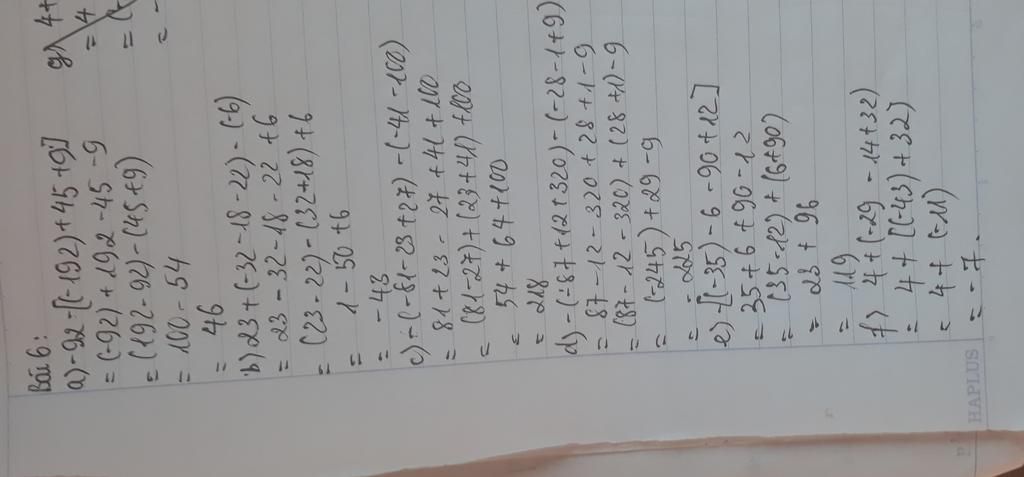 Bài 6:
a) -92 - [(-192) + 45 + 9]
= (-92) + 192 - 45 - 9
= (192 - 92) - (45 + 9)
= 100 - 54
= 46
b) 23 + (-32 - 18 - 22) - (-6)
= 23 - 32 - 18 - 22 + 6
= (23 - 22) - (32 + 18) + 6
= 1 - 50 + 6
= -43
c) - (-81 - 23 + 27) - (-41 - 100)
= 81 + 23 - 27 + 41 + 100
= (81 - 27) + (23 + 41) + 100
= 54 + 64 + 100
= 218
d) - (-87 + 12 + 320) - (-28 - 1 + 9)
= 87 - 12 - 320 + 28 + 1 - 9
= (87 - 12 - 320) + (28 + 1) - 9
= (-245) + 29 - 9
= -225
e) -[(-35) - 6 - 90 + 12]
= 35 + 6 + 90 - 12
= (35 - 12) + (6 + 90)
= 23 + 96
= 119
f) 4 + (-29 - 14 + 32)
= 4 + [(-43) + 32]
= 4 + (-11)
= -7.
g) 4+
= 4
= (
= -
HAPLUS